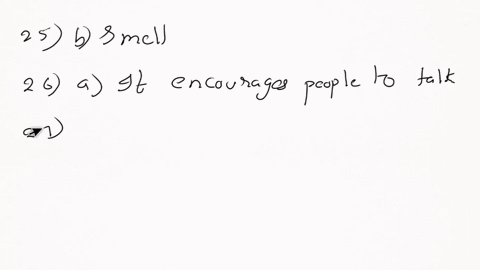 25) b) Smell
26) a) It encourages people to talk